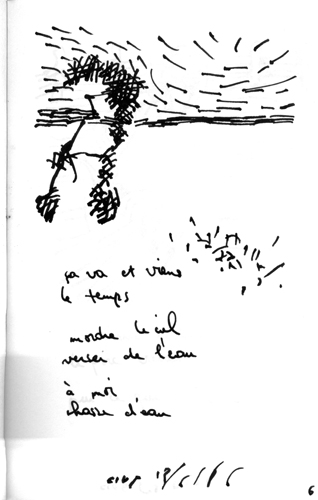 ça va et viens
le temps
mordre le ciel
verser de l'eau
à moi
chasse d'eau
6